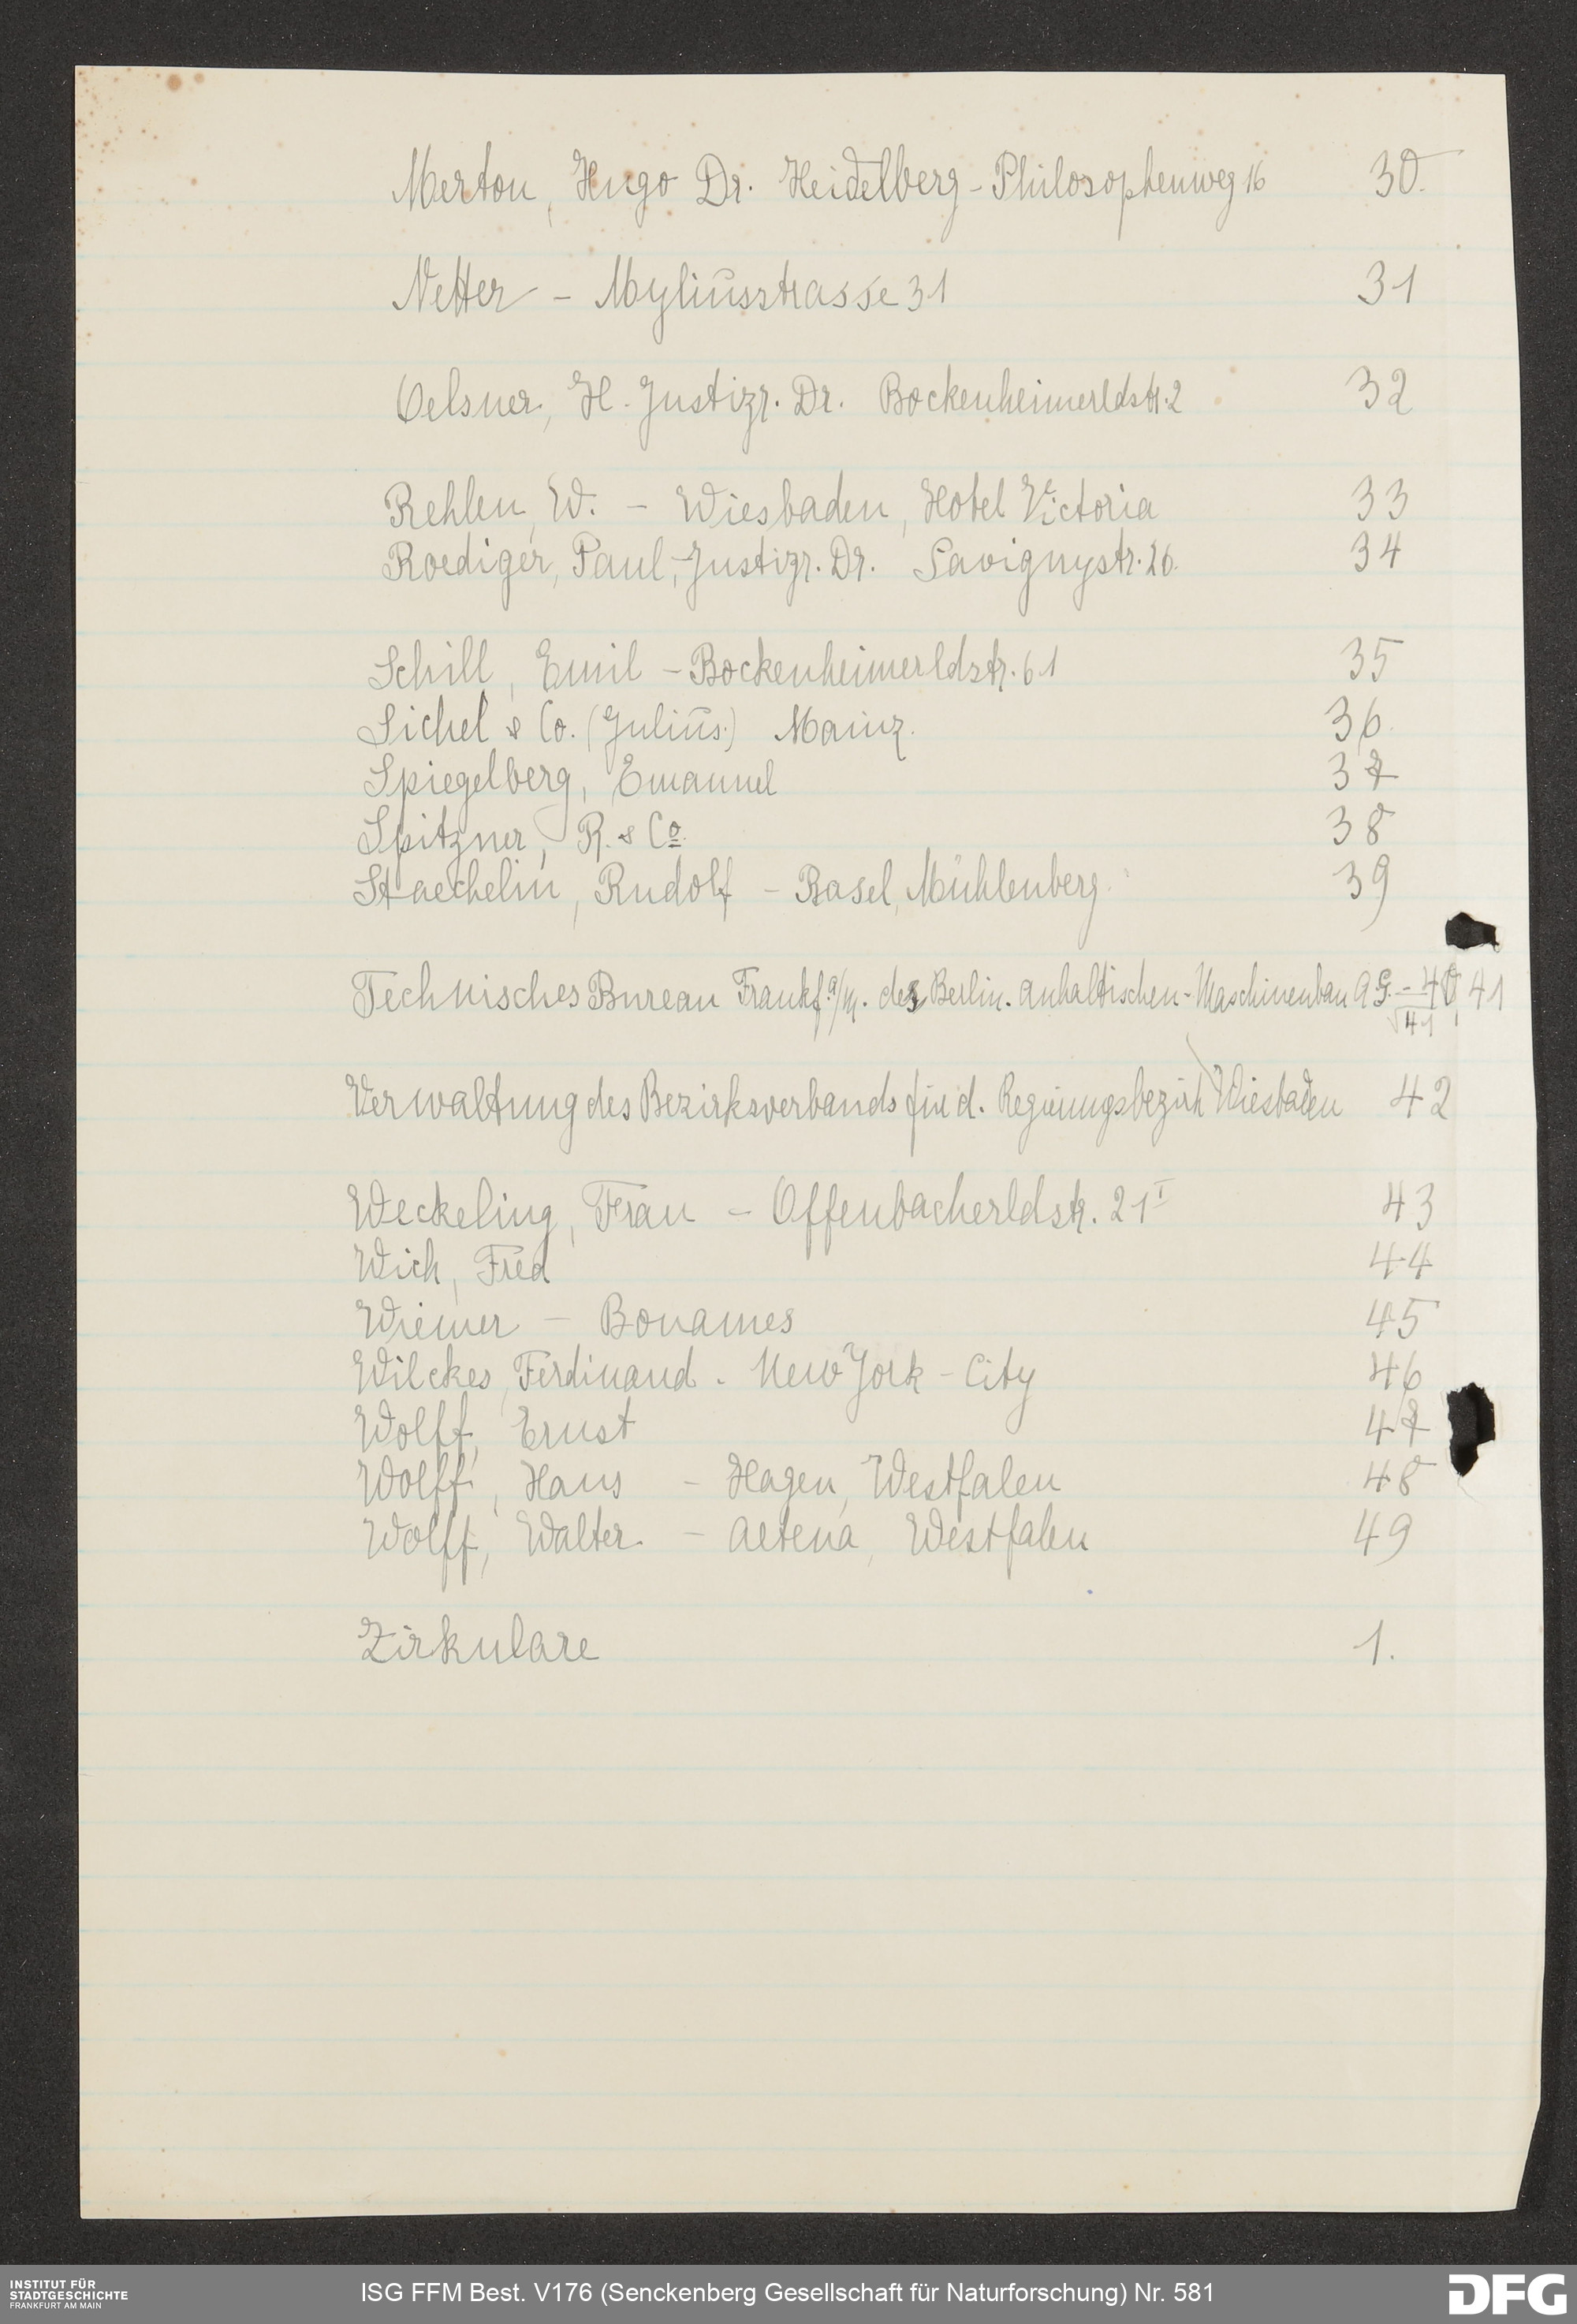 Merton, Hugo Dr. Heidelberg - Philosophenweg 16 30.
Netter - Myliusstrasse 31 31
Oelsner, H. Justizr. Dr. Bockenheimerldstr. 2 32
Rehlen, W. - Wiesbaden, Hotel Victoria 33
Roediger, Paul, Justizr. Dr. Savignystr. 26. 34
Schill, Emil - Bockenheimerldstr. 61 35
Sichel & Co. (Julius.) Mainz. 36.
Spiegelberg, Emanuel 37
Spitzner, R. & Co. 38
Staechelin, Rudolf - Basel, Mühlenberg. 39
Technisches Bureau Frankf. a/M. des Berlin. anhaltischen - Maschinenbau A G. - 40, 41
41
Verwaltung des Bezirksverbands für d. Regierungsbezirk Wiesbaden 42
Weckeling, Frau - Offenbacherldstr. 21 I 43
Wich, Fred 44
Wiemer - Bonames 45
Wilckes, Ferdinand. New York - City 46
Wolff, Ernst 47
Wolff, Hans - Hagen, Westfalen 48
Wolff, Walter - Aetena, Westfalen 49
Zirkulare 1.
INSTITUT FÜR
STADTGESCHICHTE
FRANKFURT AM MAIN
ISG FFM Best. V176 (Senckenberg Gesellschaft für Naturforschung) Nr. 581
DFG